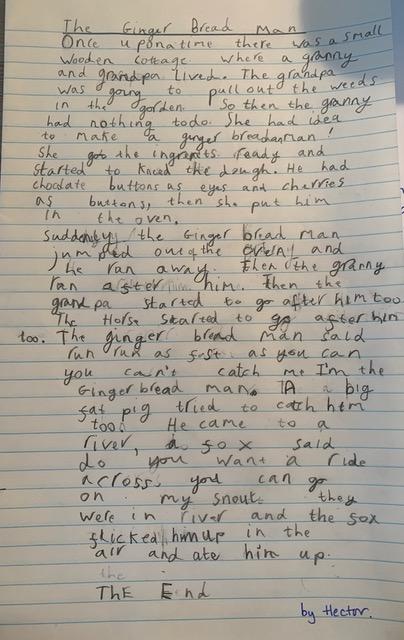 The Ginger Bread Man
Once upona time there was a small
wooden cottage where a granny
and grandpa lived. The grandpa
was going to pull out the weeds
in the gorden. So then the granny
had nothing todo. She had idea
to make a ginger breadaman!
She got the ingrents ready and
started to knead the dough. He had
choclate buttons as eyes and cherries
as buttons, then she put him
in the oven.
Suddenly the Ginger bread man
jumped out of the oven! and
He ran away. then the granny
ran after him. then the
grand pa started to go after him too
The Horse started to go after him
too. The ginger bread man said
run run as fast as you can
you can't catch me I'm the
Ginger bread man. A a big
fat pig tried to catch him
too. He came to a
river, a fox said
do you want a ride
across you can go
on my snout they
were in river and the fox
flicked him up in the
air and ate him up.
the
ThE End
by Hector.